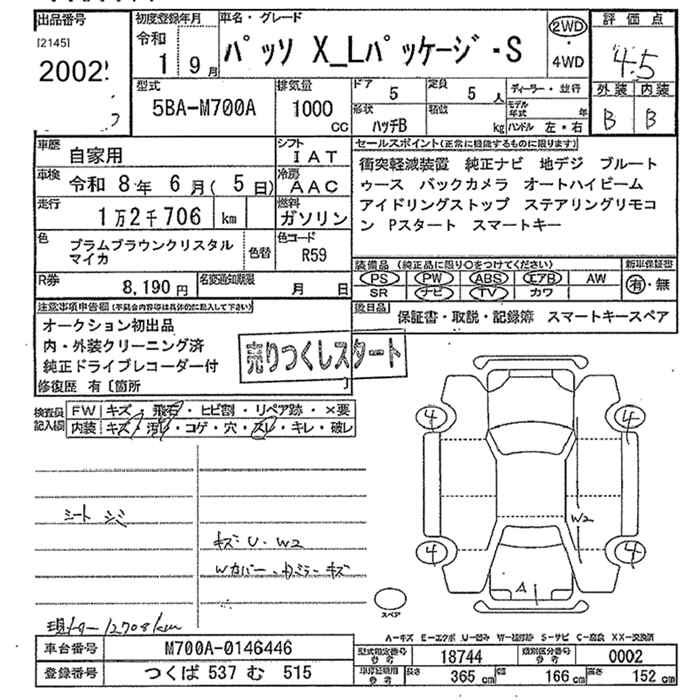 出品番号 初度登録年月 車名・グレード 評価点
[2145]
令和
2002 1 9月 パッソ X_Lパッケージ・S 2WD・4WD 4.5
型式 排気量 ドア 5 定員 5人 ディーラー・並行 外装 内装
5BA-M700A 1000cc 形状 ハッチB 積数 kg モデル年式 年 ハンドル 左・右 B B
車歴 自家用 シフト IAT セールスポイント(正常に機能するものに限ります)
車検 令和 8年 6月( 5日) 冷房 AAC 衝突軽減装置 純正ナビ 地デジ ブルート
ゥース バックカメラ オートハイビーム
走行 1万2千706 km 燃料 ガソリン アイドリングストップ ステアリングリモコ
ン Pスタート スマートキー
色 プラムブラウンクリスタル
マイカ 色替 色コード R59
装備品(純正品に限り○をつけてください) 新車保証書
PS PW ABS エアB AW 有・無
SR ナビ TV カワ
R券 8,190円 名変通知期限 月 日
後日品 保証書・取説・記録簿 スマートキースペア
注意事項申告欄(不具合内容等は具体的に記入して下さい)
オークション初出品
内・外装クリーニング済
純正ドライブレコーダー付
修復歴 有〔箇所
売りつくしスタート
検査員記入欄 FW キズ・飛石・ヒビ割・リペア跡・×要
内装 キズ・汚れ・コゲ・穴・スレ・キレ・破レ
4 4
シート シミ
キズ U・W2
W2
Wカバー・カバミラーキズ
4 4
A
スペア
現メーター12708km
A-キズ E-エクボ U-凹み W-補修跡 S-サビ C-腐食 XX-交換済
車台番号 M700A-0146446 型式指定番号 参考 18744 類別区分番号 参考 0002
登録番号 つくば 537 む 515 車庫証明用 参考 長さ 365 cm 幅 166 cm 高さ 152 cm